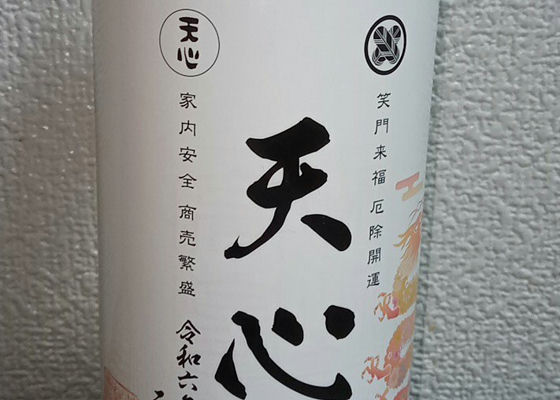 笑門来福 厄除開運
天心
天心
家内安全 商売繁盛
令和六年